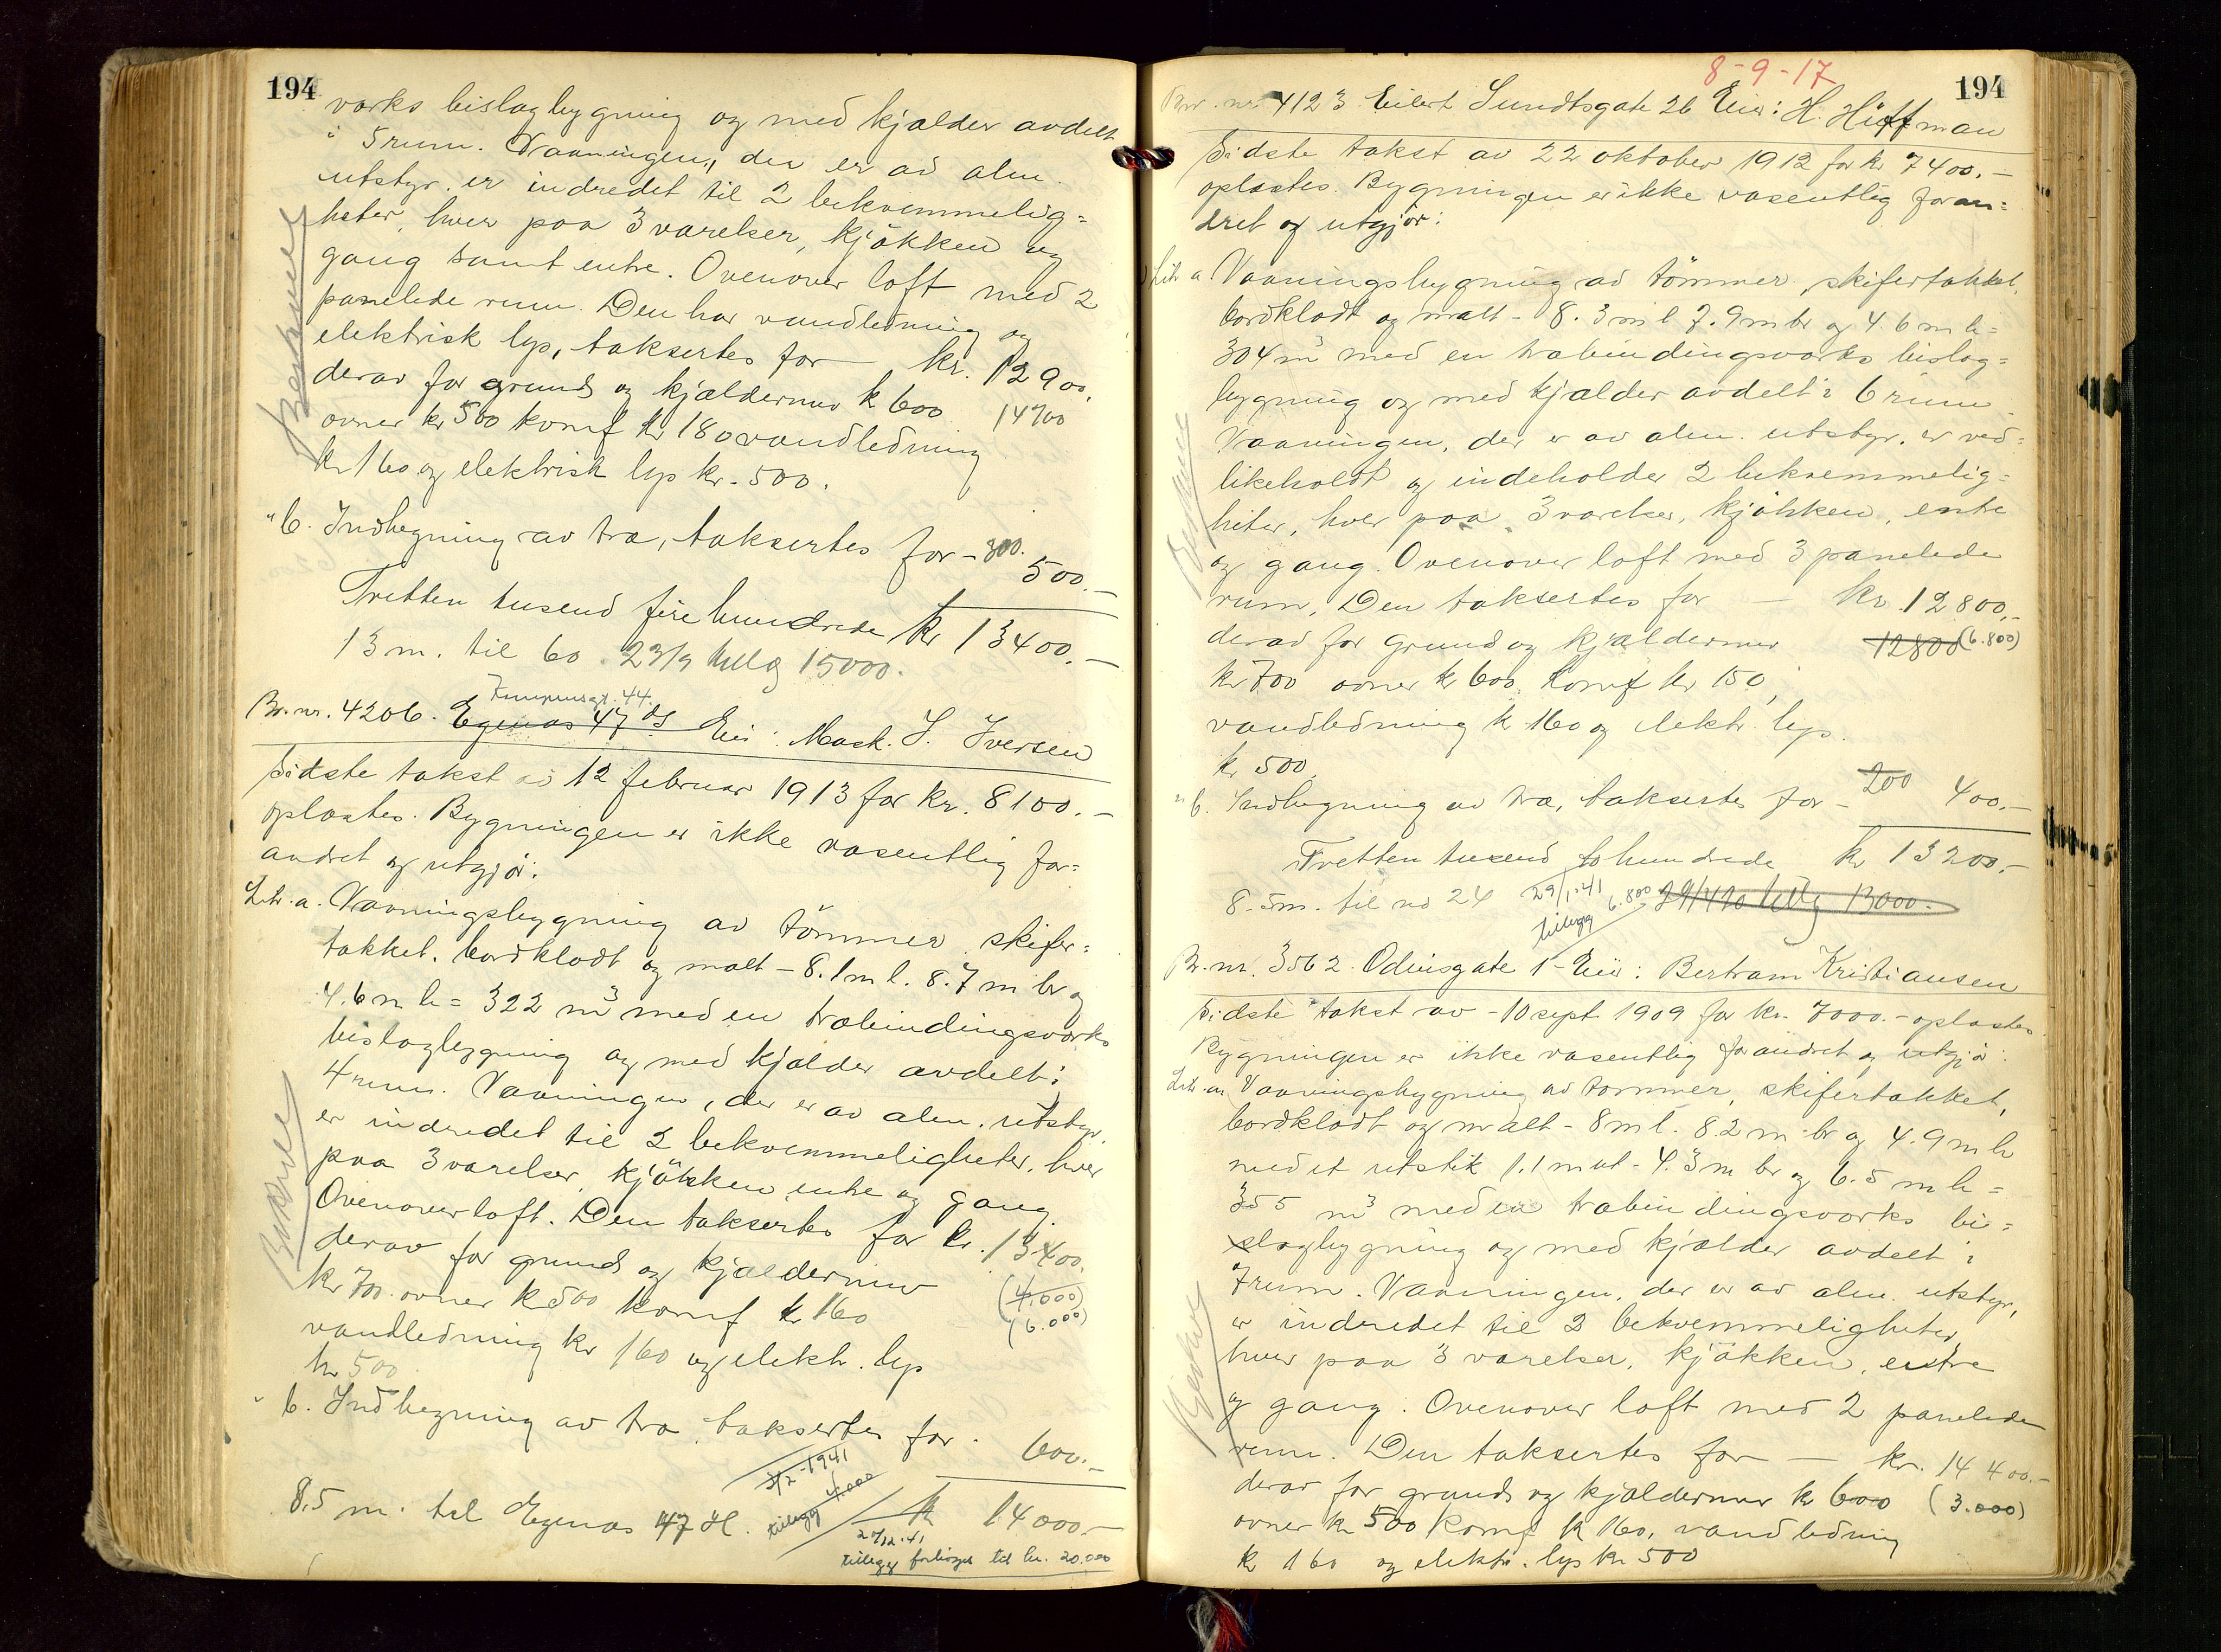 194
værks bislagbygning og med kjælder avdelt
i 5 rum. Vaaningen, der er av alm.
utstyr, er indredet til 2 bekvemmelig=
heter, hver paa 3 værelser, kjøkken og
gang samt entre. Ovenover loft med 2
panelede rum. Den har vandledning og
elektrisk lys, taksertes for kr. 12900,
derav for grund og kjældermur kr 600 14700
ovner kr 500 komf kr 180 vandledning
kr 160 og elektrisk lys kr. 500.
" b. Indhegning av træ, taksertes for - 300. 500.-
Tretten tusend fire hundrede kr 13400.-
13 m. til 60. 23/9 tillæg 15000.
Br. nr. 4206. Egenæs 47 Eier: Mask. J. Iversen
Sidste takst av 12 februar 1913 for kr. 8100.-
oplæstes. Bygningen er ikke væsentlig for=
andret og utgjør:
Litr. a. Vaaningsbygning av tømmer, skifer=
tækket, bordklædt og malt - 8.1 m l. 8.7 m br og
4.6 m h = 322 m³ med en træbindingsværks
bislagbygning og med kjælder avdelt i
4 rum. Vaaningen, der er av alm. utstyr,
er indredet til 2 bekvemmeligheter, hver
paa 3 værelser, kjøkken, entre og gang.
Ovenover loft. Den taksertes for kr. 13400.
derav for grund og kjældermur (4.000)
kr 700. ovner kr 500 komf kr 160 (6.000)
vandledning kr 160 og elektr. lys
kr 500
" b. Indhegning av træ, taksertes for. 600.-
3/2-1941
tillegg 4.000
8.5 m. til Egenæs 47 H. kr 14000.-
20/12.41
tillegg forhøiet til kr. 20.000
8-9-17
194
Br. nr. 4123 Eilert Sundtsgate 26 Eier: H. Hüffman
Sidste takst av 22 oktober 1912 for kr 7400.-
oplæstes. Bygningen er ikke væsentlig foran=
dret og utgjør:
Litr a. Vaaningsbygning av tømmer, skifertækket,
bordklædt og malt - 8.3 m l 7.9 m br og 4.6 m h =
304 m³ med en træbindingsværks bislag=
bygning og med kjælder avdelt i 6 rum.
Vaaningen, der er av alm. utstyr, er ved=
likeholdt og indeholder 2 bekvemmelig=
heter, hver paa 3 værelser, kjøkken, entre
og gang. Ovenover loft med 3 panelede
rum, Den taksertes for - kr. 12800,-
derav for grund og kjældermur 12800 (6.800)
kr 700 ovner kr 600, komf kr 150,
vandledning kr 160 og elektr. lys
kr 500.
" b. Indhegning av træ, taksertes for - 200 400.-
Tretten tusend to hundrede kr 13200.-
8.5 m. til no 24 29/1-41 tillegg 6.800 29/4 20 tillæg 13000.-
Br. nr. 3562. Odinsgate 1 - Eier: Bertram Kristiansen
Sidste takst av - 10 sept 1909 for kr. 7000.- oplæstes.
Bygningen er ikke væsentlig forandret og utgjør:
Litr. a. Vaaningsbygning av tømmer, skifertækket,
bordklædt og malt - 8 m l. 8.2 m br og 4.9 m h
med et utstik 1.1 m ut - 4.3 m br og 6.5 m h =
355 m³ med en træbindingsværks bi=
slagbygning og med kjælder avdelt i
7 rum. Vaaningen, der er av alm. utstyr,
er indredet til 2 bekvemmeligheter,
hver paa 3 værelser, kjøkken, entre
og gang. Ovenover loft med 2 panelede
rum. Den taksertes for - kr. 14400.-
derav for grund og kjældermur kr 600 (3.000)
ovner kr 500 komf kr 160, vandledning
kr 160 og elektr. lys kr 500